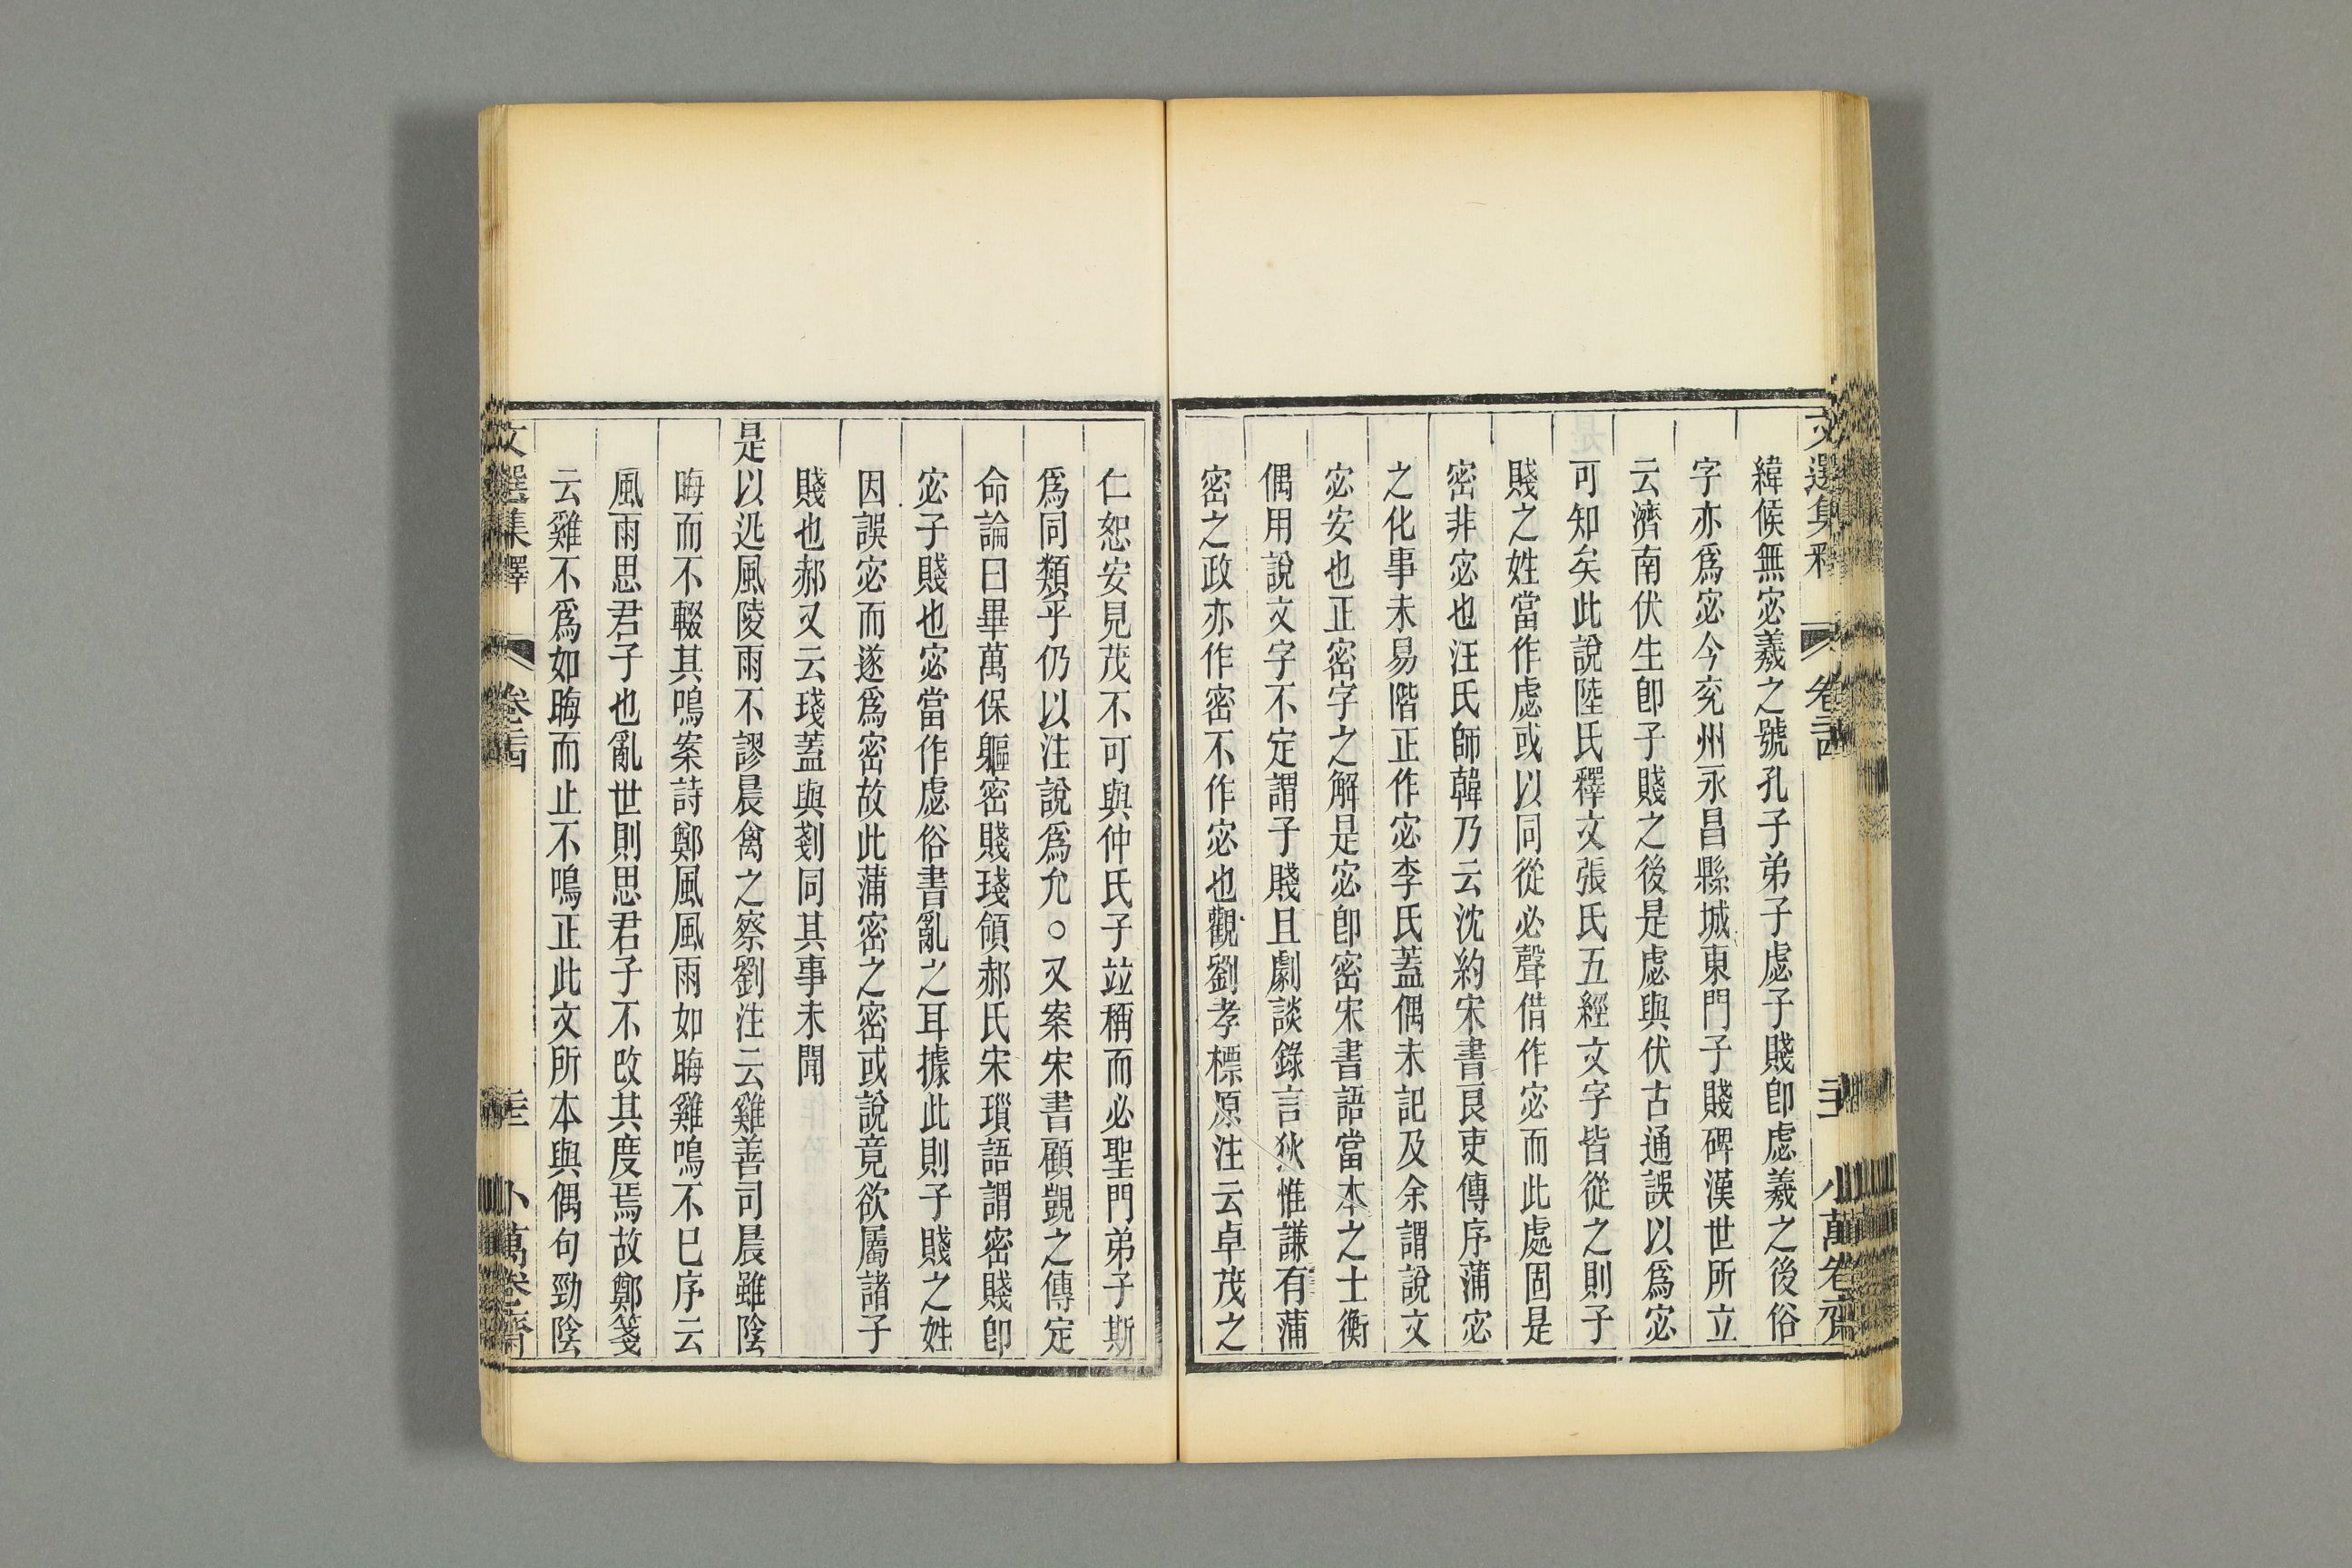 文選集釋 卷二十四 小萬卷齋
緯候無宓羲之號孔子弟子虙子賤卽虙羲之後俗
字亦爲宓今兖州永昌縣城東門子賤碑漢世所立
云濟南伏生卽子賤之後是虙與伏古通誤以爲宓
可知矣此說陸氏釋文張氏五經文字皆從之則子
賤之姓當作虙或以同從必聲借作宓而此處固是
密非宓也汪氏師韓乃云沈約宋書良吏傳序蒲宓
之化事未易階正作宓李氏蓋偶未記及余謂說文
宓安也正密字之解是宓卽密宋書語當本之士衡
偶用說文字不定謂子賤且劇談錄言狄惟謙有蒲
密之政亦作密不作宓也觀劉孝標原注云卓茂之
仁恕安見茂不可與仲氏子竝稱而必聖門弟子斯
爲同類乎仍以注說爲允○又案宋書顧覬之傳定
命論曰畢萬保軀密賤殘領郝氏宋瑣語謂密賤卽
宓子賤也宓當作虙俗書亂之耳據此則子賤之姓
因誤宓而遂爲密故此蒲密之密或說竟欲屬諸子
賤也郝又云殘蓋與剗同其事未聞
是以迅風陵雨不謬晨禽之察劉注云雞善司晨雖陰
晦而不輟其鳴案詩鄭風風雨如晦雞鳴不已序云
風雨思君子也亂世則思君子不改其度焉故鄭箋
云雞不爲如晦而止不鳴正此文所本與偶句勁陰
文選集釋 卷二十四 小萬卷齋